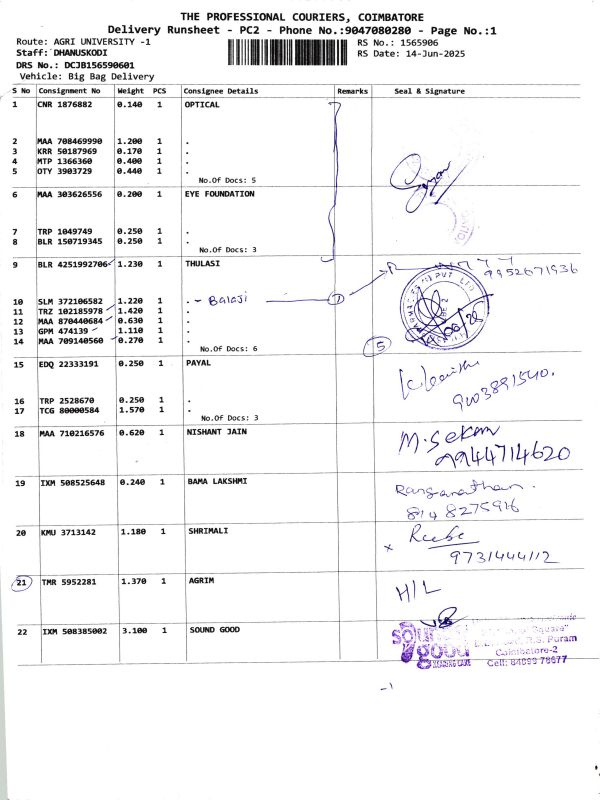 THE PROFESSIONAL COURIERS, COIMBATORE
Delivery Runsheet - PC2 - Phone No.:9047080280 - Page No.:1
Route: AGRI UNIVERSITY -1
RS No.: 1565906
Staff: DHANUSKODI
RS Date: 14-Jun-2025
DRS No.: DCJB156590601
Vehicle: Big Bag Delivery
S No Consignment No Weight PCS Consignee Details Remarks Seal & Signature
1 CNR 1876882 0.140 1 OPTICAL
2 MAA 708469990 1.200 1 .
3 KRR 50187969 0.170 1 .
4 MTP 1366360 0.400 1 .
5 OTY 3903729 0.440 1 .
No.Of Docs: 5
6 MAA 303626556 0.200 1 EYE FOUNDATION
7 TRP 1049749 0.250 1 .
8 BLR 150719345 0.250 1 .
No.Of Docs: 3
9 BLR 4251992706 1.230 1 THULASI
9952671936
10 SLM 372106582 1.220 1 . - Balaji
11 TRZ 102185978 1.420 1 .
12 MAA 870440684 0.630 1 .
13 GPM 474139 1.110 1 .
14 MAA 709140560 0.270 1 .
5
No.Of Docs: 6
15 EDQ 22333191 0.250 1 PAYAL
9003891540.
16 TRP 2528670 0.250 1 .
17 TCG 80000584 1.570 1 .
No.Of Docs: 3
18 MAA 710216576 0.620 1 NISHANT JAIN
M.Sekar
9944714620
19 IXM 508525648 0.240 1 BAMA LAKSHMI
Ranganathan.
8148275916
20 KMU 3713142 1.180 1 SHRIMALI
x
9731444112
21 TMR 5952281 1.370 1 AGRIM
H/L
22 IXM 508385002 3.100 1 SOUND GOOD
sound good
HEARING CARE
Square"
R.S. Puram
Coimbatore-2
Cell: 84893 78677
-1